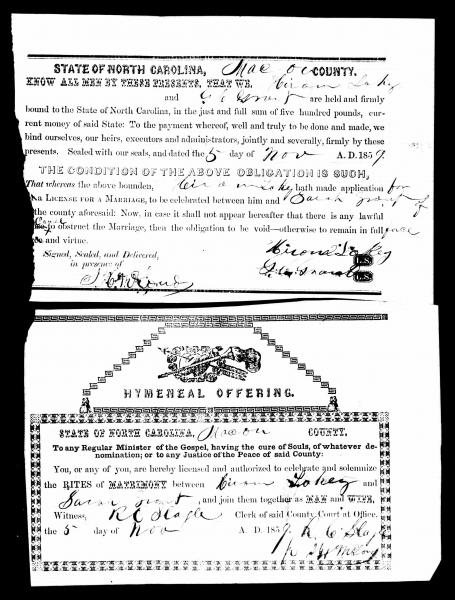 STATE OF NORTH CAROLINA, Macon COUNTY.
KNOW ALL MEN BY THESE PRESENTS, THAT WE, Hiram Lokey
and are held and firmly
bound to the State of North Carolina, in the just and full sum of five hundred pounds, cur-
rent money of said State: To the payment whereof, well and truly to be done and made, we
bind ourselves, our heirs, executors and administrators, jointly and severally, firmly by these
presents. Sealed with our seals, and dated the 5 day of Nov A. D. 1859.
THE CONDITION OF THE ABOVE OBLIGATION IS SUCH,
That whereas the above bounden, Hiram Lokey hath made application for
A LICENSE FOR A MARRIAGE, to be celebrated between him and Sarah Grant of
the county aforesaid: Now, in case it shall not appear hereafter that there is any lawful
to obstruct the Marriage, then the obligation to be void—otherwise to remain in full
and virtue.
Signed, Sealed, and Delivered,
in presence of
Hiram Lokey
LS
LS
HYMENEAL OFFERING.
STATE OF NORTH CAROLINA, Macon COUNTY.
To any Regular Minister of the Gospel, having the cure of Souls, of whatever de-
nomination; or to any Justice of the Peace of said County:
You, or any of you, are hereby licensed and authorized to celebrate and solemnize
the RITES OF MATRIMONY between Hiram Lokey and
Sarah Grant, and join them together as MAN and WIFE,
Witness, R C Slagle Clerk of said County Court at Office.
the 5 day of Nov A. D. 1859. R C Slagle